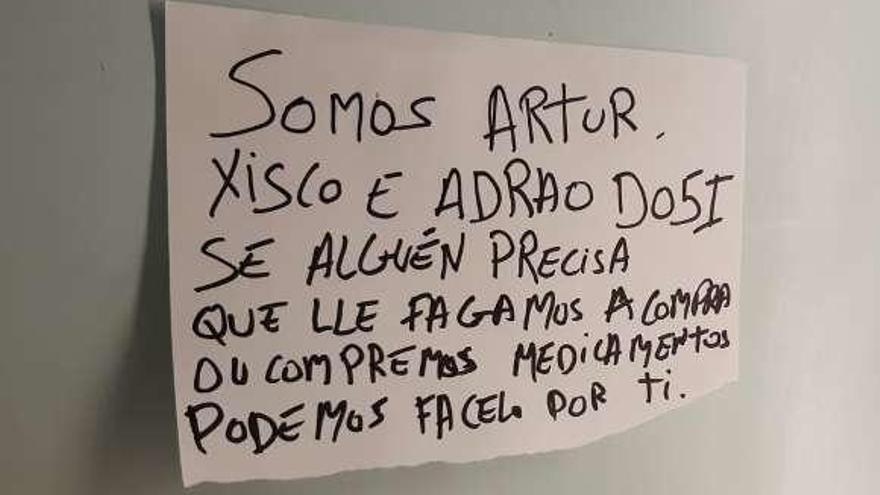 SOMOS ARTUR.
XISCO E ADRAO DO5I
SE ALGUÉN PRECISA
QUE LLE FAGAMOS A COMPRA
OU COMPREMOS MEDICAMENTOS
PODEMOS FACELO POR TI.